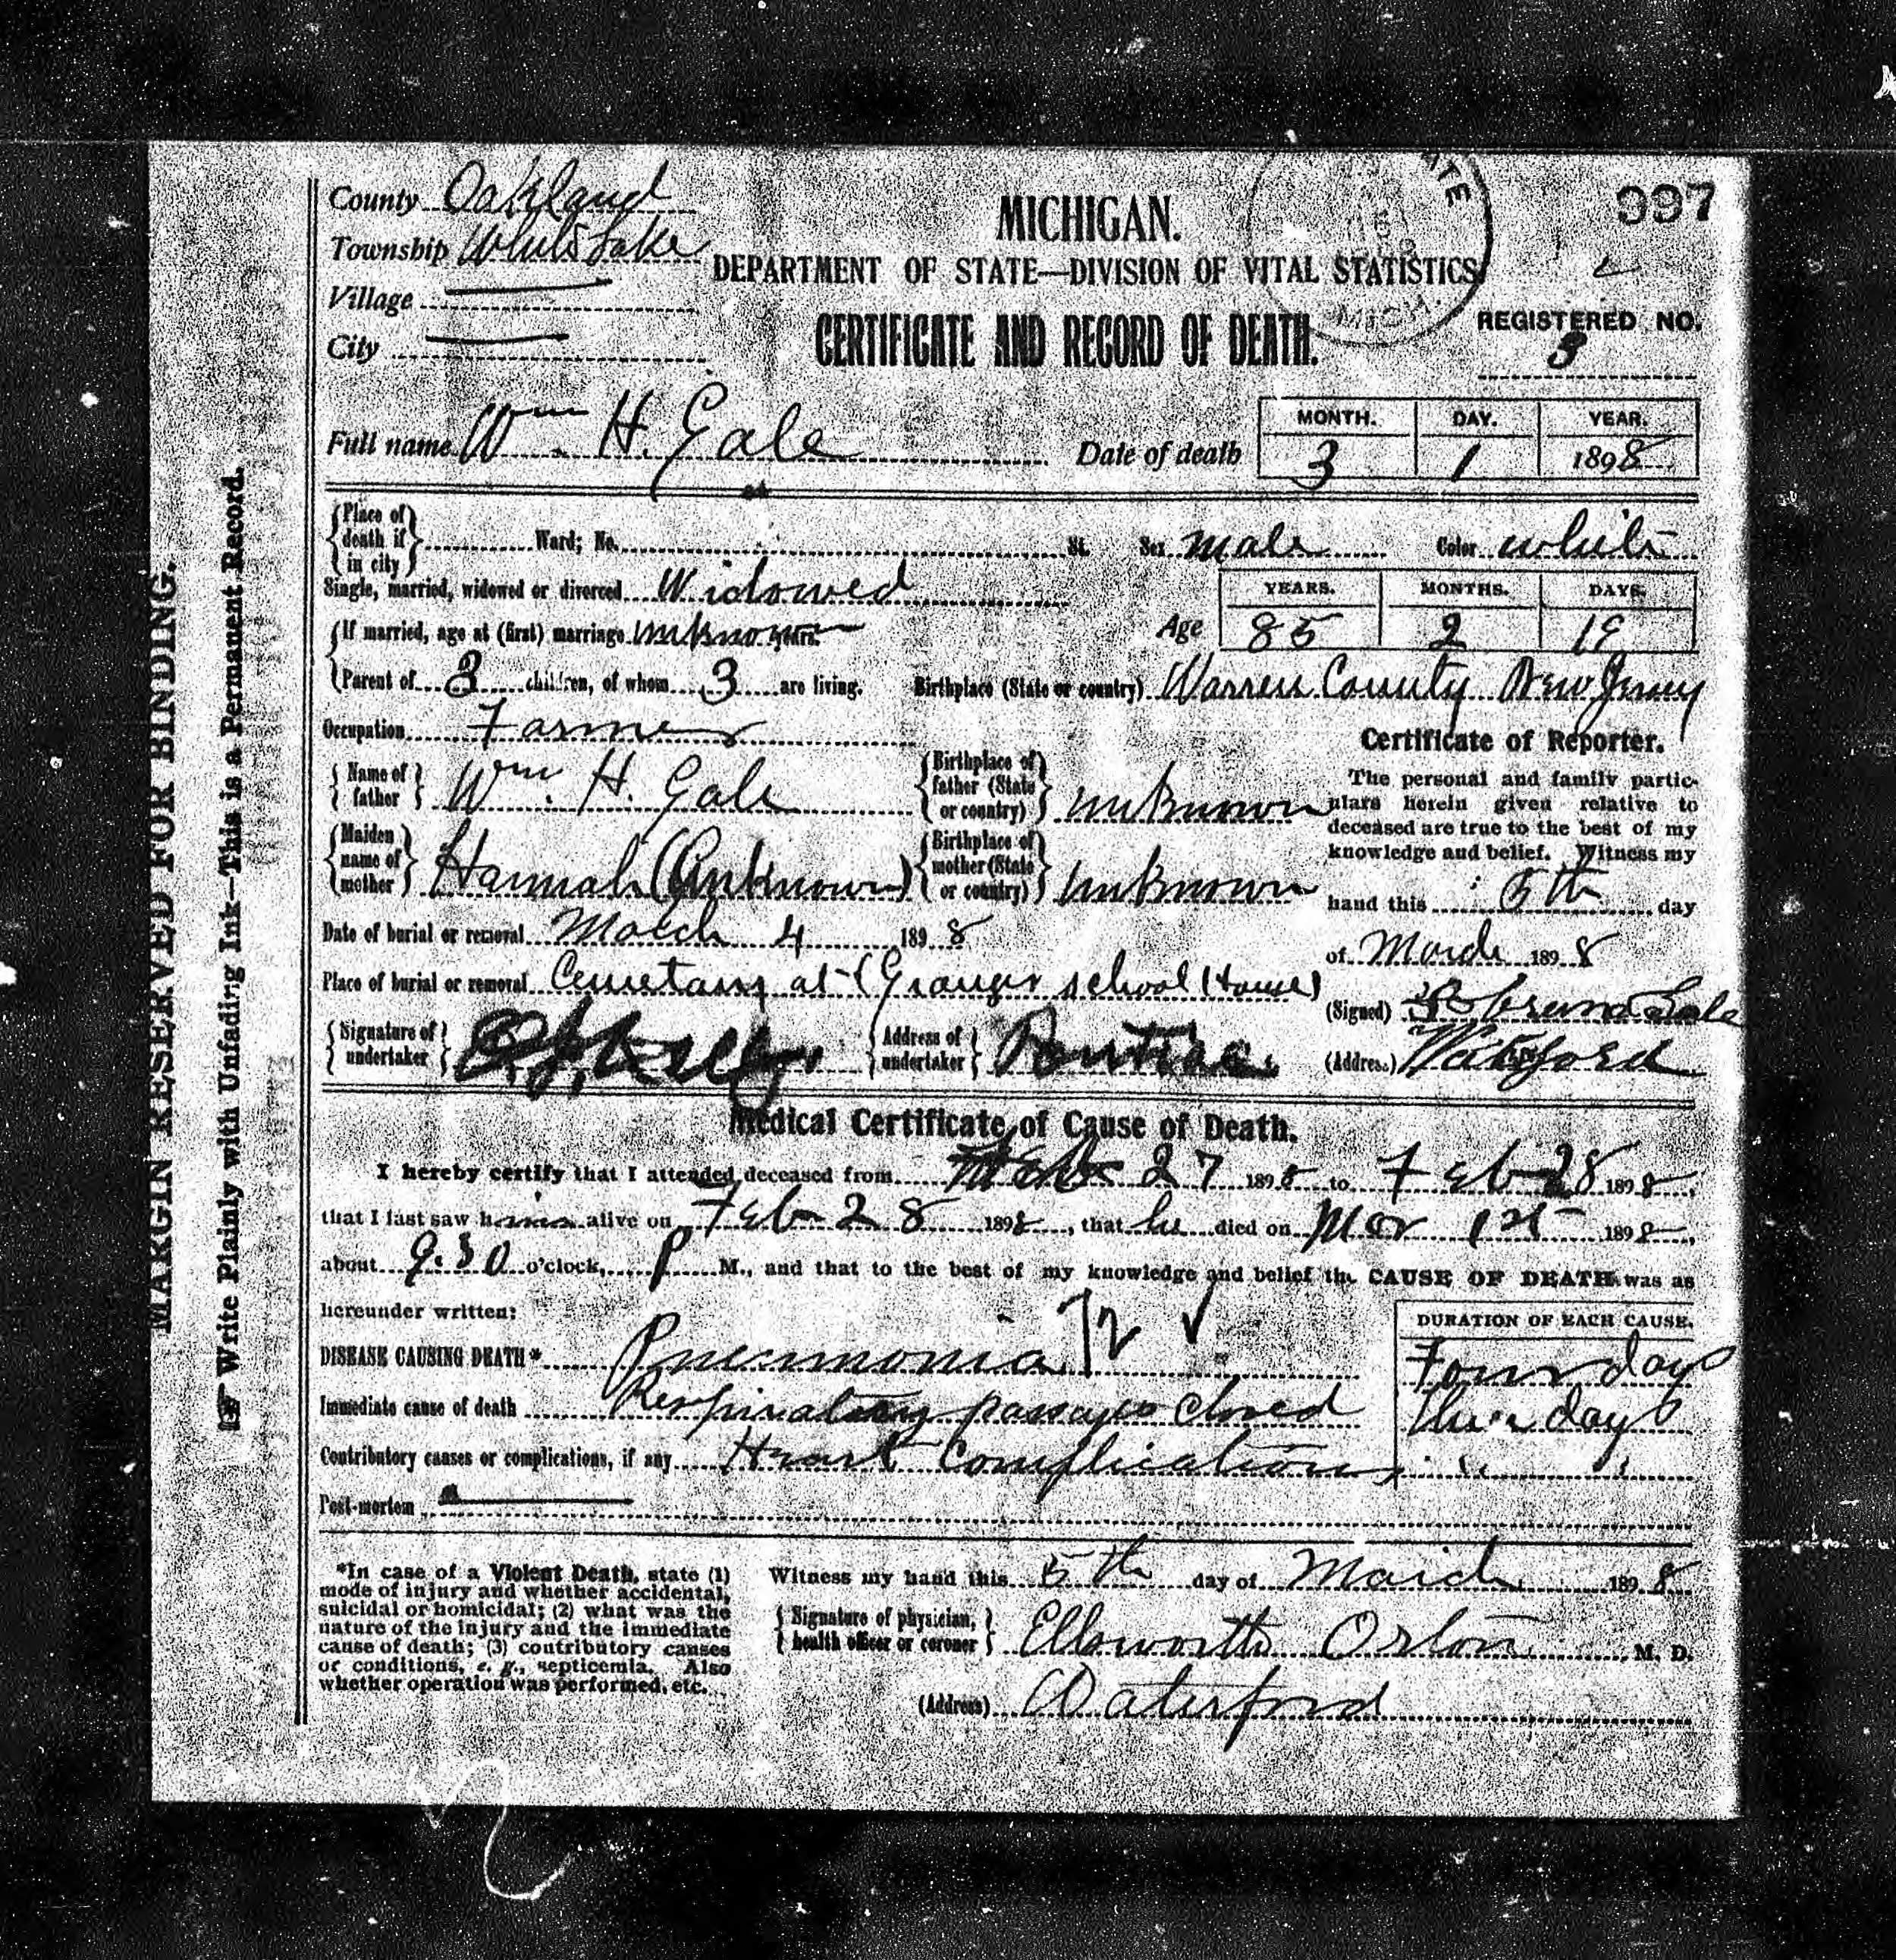 997
County Oakland
Township White Lake
Village
City
MICHIGAN.
DEPARTMENT OF STATE—DIVISION OF VITAL STATISTICS
CERTIFICATE AND RECORD OF DEATH.
REGISTERED NO.
3
Full name Wm H. Gale
Date of death
MONTH. DAY. YEAR.
3 1 1898
Place of death if in city Ward; No. St. Sex male Color white
Single, married, widowed or divorced Widowed
If married, age at (first) marriage unknown years.
Age
YEARS. MONTHS. DAYS.
85 2 19
Parent of 3 children, of whom 3 are living. Birthplace (State or country) Warren County New Jersey
Occupation Farmer
Name of father Wm. H. Gale Birthplace of father (State or country) unknown
Maiden name of mother Hannah (Unknown) Birthplace of mother (State or country) unknown
Date of burial or removal March 4 1898
Place of burial or removal Cemetary at (Granger school House)
Signature of undertaker Address of undertaker Pontiac
Certificate of Reporter.
The personal and family partic-
ulars herein given relative to
deceased are true to the best of my
knowledge and belief. Witness my
hand this 5th day
of March 1898
(Signed) Gale
(Address) Waterford
Medical Certificate of Cause of Death.
I hereby certify that I attended deceased from Feb 27 1898 to Feb 28 1898,
that I last saw him alive on Feb 28 1898, that he died on Mar 1st 1898,
about 9.30 o'clock, P M., and that to the best of my knowledge and belief the CAUSE OF DEATH was as
hereunder written:
DURATION OF EACH CAUSE.
DISEASE CAUSING DEATH* Pneumonia 72 ✓ Four days
Immediate cause of death Respiratory passages closed Three days
Contributory causes or complications, if any Heart Complications " "
Post-mortem
*In case of a Violent Death, state (1)
mode of injury and whether accidental,
suicidal or homicidal; (2) what was the
nature of the injury and the immediate
cause of death; (3) contributory causes
or conditions, e. g., septicemia. Also
whether operation was performed, etc.
Witness my hand this 5th day of March 1898
Signature of physician, health officer or coroner Ellsworth Orton M. D.
(Address) Waterford
MARGIN RESERVED FOR BINDING.
Write Plainly with Unfading Ink—This is a Permanent Record.